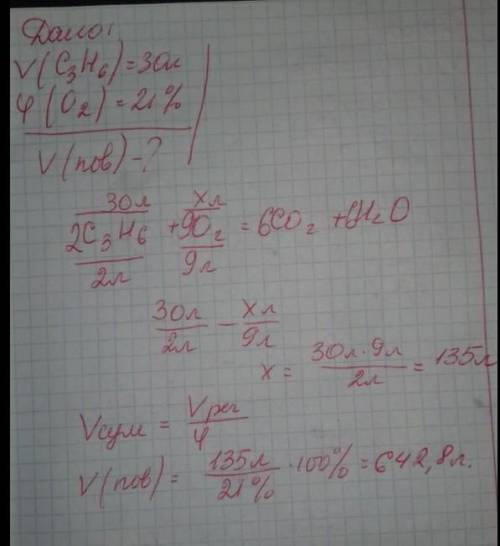 Дано:
V(C₃H₆)=30л
φ(O₂)=21%
V(пов)-?
30л хл
2C₃H₆ + 9O₂ = 6CO₂ + 6H₂O
2л 9л
30л/2л - хл/9л
x = 30л·9л/2л = 135л
Vсум = Vреч/φ
V(пов) = 135л/21% ·100% = 642,8л.